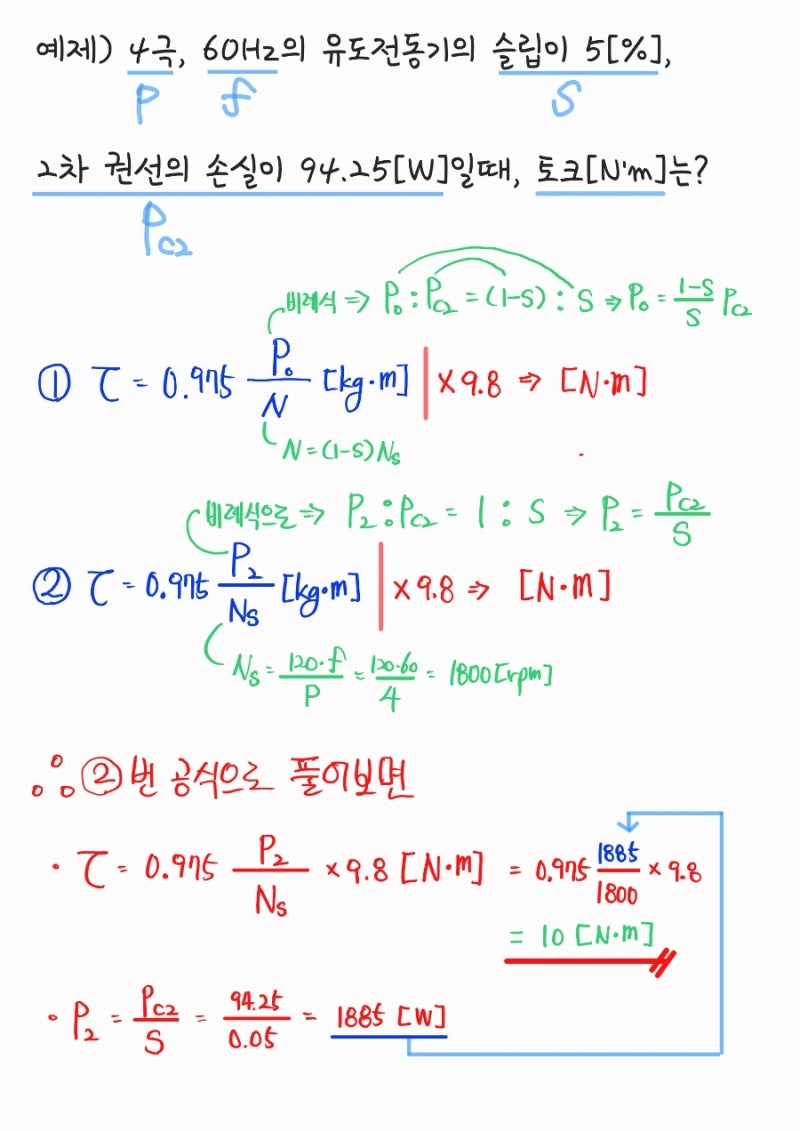 예제) 4극, 60Hz의 유도전동기의 슬립이 5[%],
P f S
2차 권선의 손실이 94.25[W]일때, 토크[N·m]는?
Pc2
비례식 ⇒ P₀ : Pc2 = (1-S) : S ⇒ P₀ = (1-S)/S Pc2
① τ = 0.975 P₀/N [kg·m] | × 9.8 ⇒ [N·m]
N = (1-S)Ns
비례식으로 ⇒ P₂ : Pc2 = 1 : S ⇒ P₂ = Pc2/S
② τ = 0.975 P₂/Ns [kg·m] | × 9.8 ⇒ [N·m]
Ns = 120·f/P = 120·60/4 = 1800[rpm]
∴ ②번 공식으로 풀어보면
· τ = 0.975 P₂/Ns × 9.8 [N·m] = 0.975 1885/1800 × 9.8
= 10 [N·m]
· P₂ = Pc2/S = 94.25/0.05 = 1885 [W]